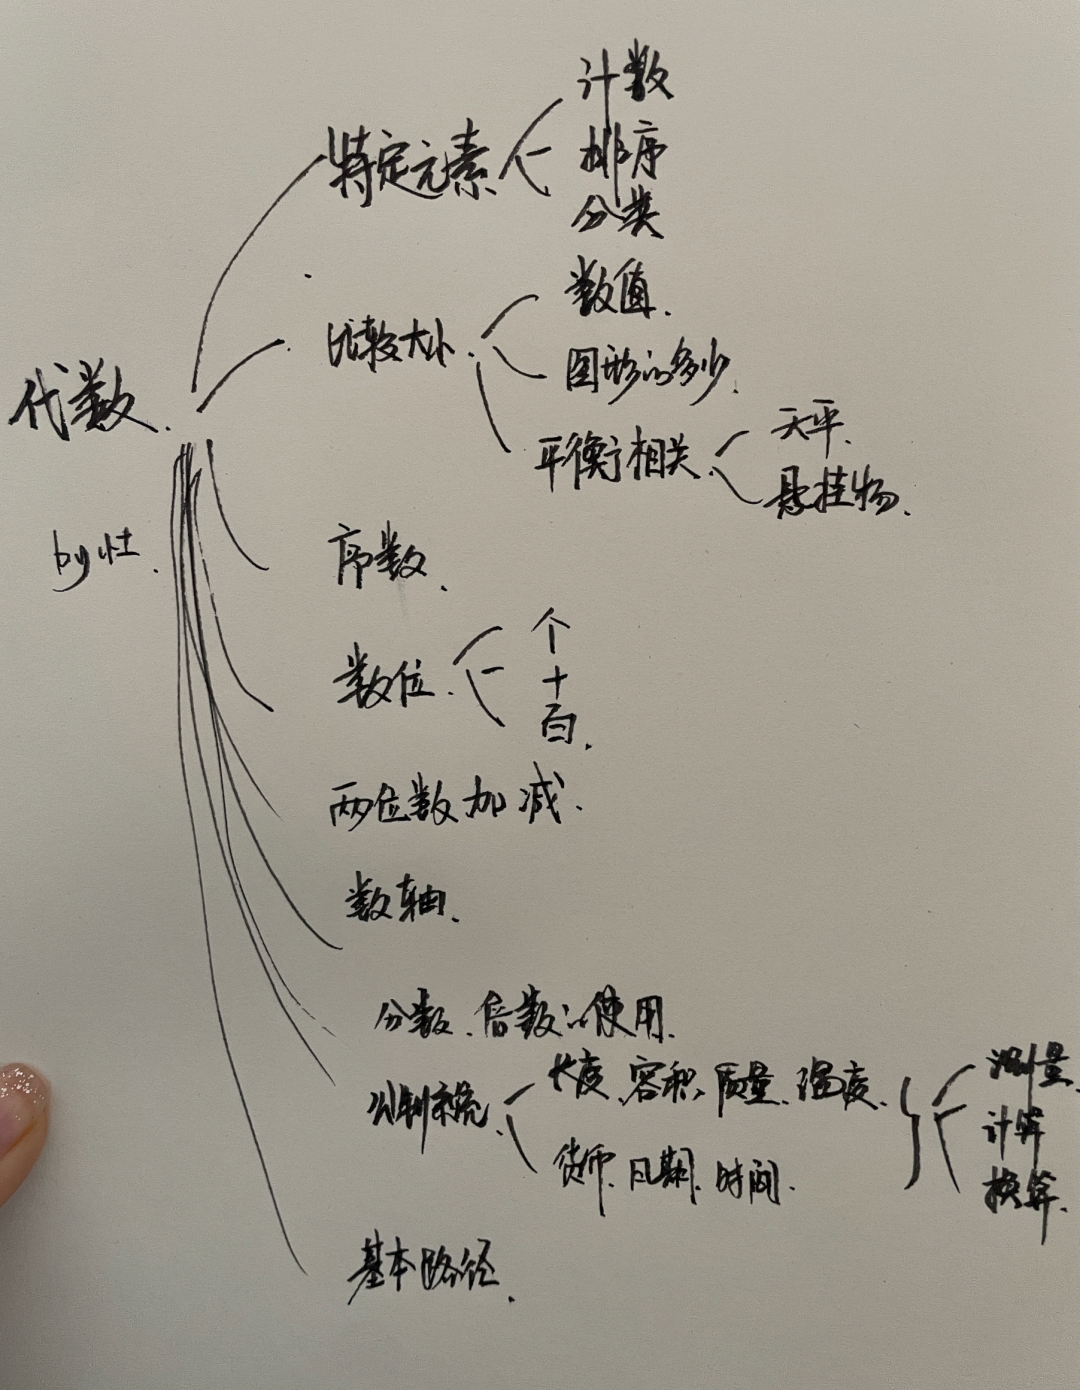 计数
特定元素
排序
分类
数值.
比较大小.
图形的多少.
代数.
天平.
平衡相关.
悬挂物.
by 灶.
序数.
个
数位.
十
百.
两位数加减.
数轴.
分数、倍数的使用.
长度、容积、质量、温度.
测量.
公制系统.
计算
货币、日期、时间.
换算.
基本路径.